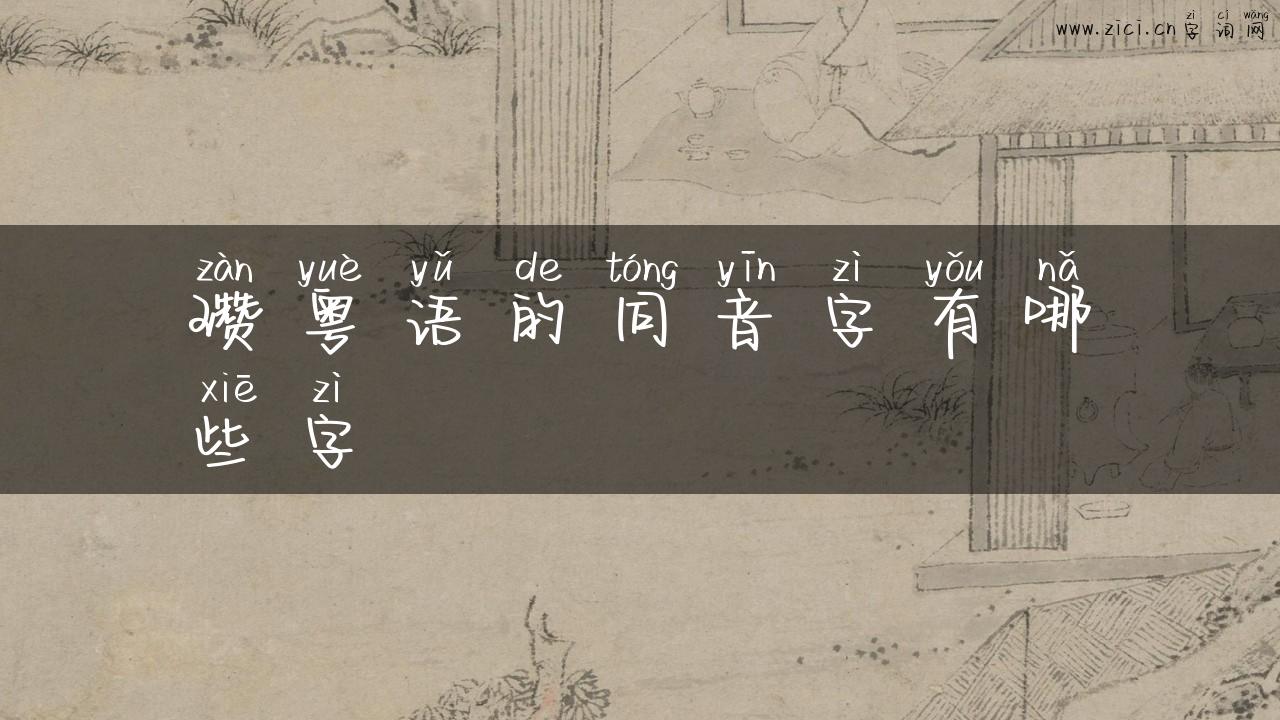 zì cí wǎng
www.zici.cn 字词网
zàn yuè yǔ de tóng yīn zì yǒu nǎ
瓒粤语的同音字有哪
xiē zì
些字